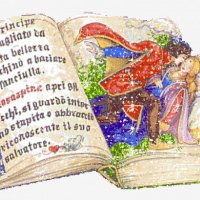 principe
ta bellezza
chinò a baciare
fanciulla.
aprì gli
occhi, si guardò intor
no stupita e abbracciò
riconoscente il suo
salvatore.